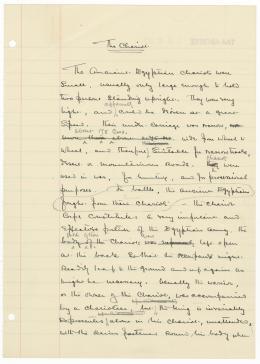 The Chariot.
The Ancient Egyptian Chariots were
small, usually only large enough to hold
two persons standing upright. They were very
light, apparently and could be driven at a great
speed. Their under carriage was narrow,
about
wide from wheel to
wheel, and therefore suitable for
over mountainous roads. They were
used in war, for hunting, and for processional
purposes. In battle, the ancient Egyptian
fought from their Chariots — the Chariot
Corps constitutes a very impressive and
effective portion of the Egyptian army. The
body of the Chariot was left open
at the back so that the occupant might
readily leap to the ground and up again as
might be necessary. Usually the warrior,
or the owner of the Chariot, was accompanied
by a charioteer, but the king is invariably
represented alone in his chariot, unattended,
with the reins fastened round his body when